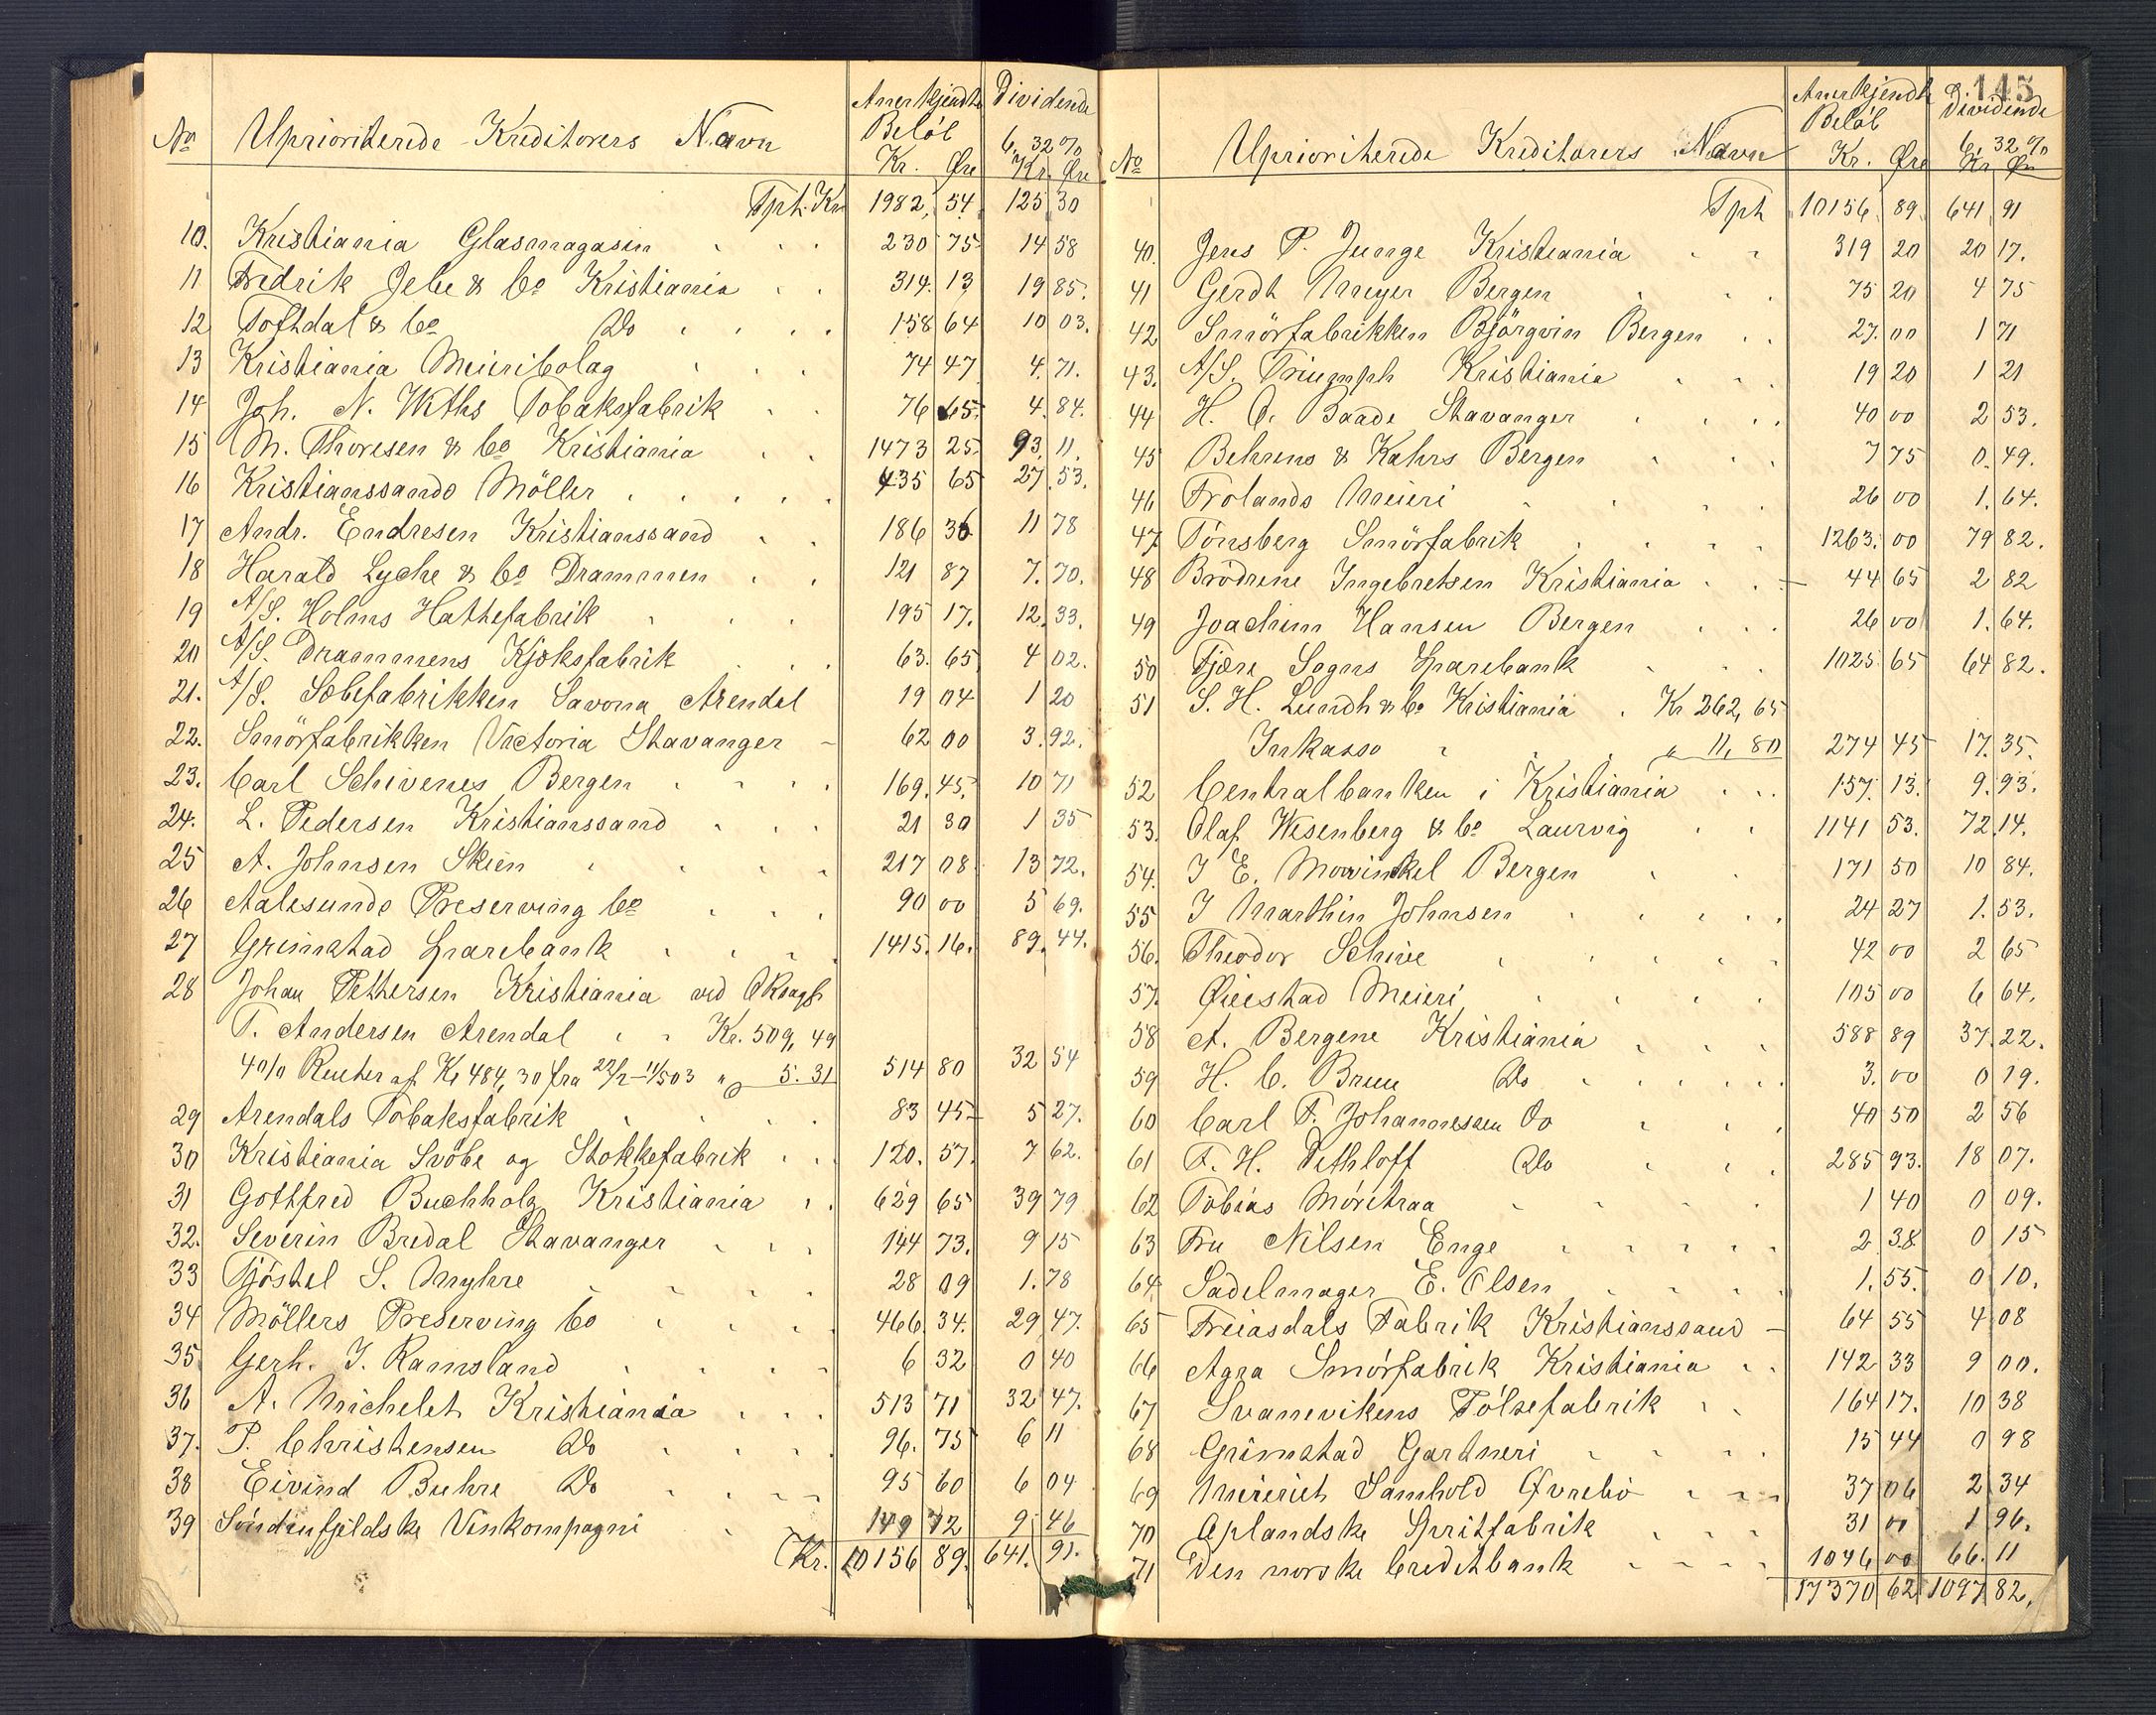 No Uprioriterede Kreditorers Navn Anerkjendt Beløb Kr. Øre Dividende 6,32% Kr. Øre
Tpt. Kr 1982, 54 125 30
10. Kristiania Glasmagasin 230 75 14 58
11 Fredrik Jebe & Co Kristiania 314. 13 19 85.
12 Toftdal & Co Do 158 64 10 03.
13 Kristiania Meieribolag 74 47 4. 71.
14 Joh. N. Withs Tobaksfabrik 76 65. 4. 84.
15 M. Thoresen & Co Kristiania 1473 25 93. 11.
16 Kristianssands Möller 435 65 27. 53.
17 Andr. Endresen Kristianssand 186 36 11 78
18 Harald Lyche & Co Drammen 121 87 7. 70.
19 A/S. Holms Hattefabrik 195 17. 12. 33.
20 A/S. Drammens Kjæksfabrik 63. 65 4 02.
21. A/S. Sæbefabrikken Savona Arendal 19 04 1 20
22. Smörfabrikken Victoria Stavanger 62 00 3. 92.
23. Carl Schivenes Bergen 169. 45. 10 71
24. L. Pedersen Kristianssand 21 30 1 35
25 A. Johnsen Skien 217 08 13 72.
26 Aalesunds Preserving Co 90 00 5 69.
27 Grimstad Sparebank 1415. 16. 89. 44.
28 Johan Pettersen Kristiania ved ORsagf.
T. Andersen Arendal Kr. 509, 49
4% Renter af Kr 484, 30 fra 22/2-11/5 03 " 5. 31 514 80 32 54
29 Arendals Tobaksfabrik 83 45 5 27.
30 Kristiania Svöbe og Stokkefabrik 120. 57. 7 62.
31 Gottfred Buchholz Kristiania 629 65 39 79
32. Severin Bredal Stavanger 144 73. 9 15
33 Tjöstel S. Myhre 28 09 1. 78
34 Möllers Preserving Co 466. 34. 29 47.
35 Gerh. J. Ramsland 6 32 0 40
36 A. Michelet Kristiania 513 71 32 47.
37. P. Christensen Do 96. 75 6 11
38 Eivind Buhre Do 95 60 6 04
39 Söndenfjeldske Vinkompagni 149 72 9. 46
Kr. 10156 89. 641. 91.
145
No Uprioriterede Kreditorers Navn Anerkjendt Beløb Kr. Øre Dividende 6,32% Kr Øre
Tpt 10156 89. 641 91
40. Jens P. Junge Kristiania 319 20 20 17.
41 Gerdt Meyer Bergen 75 20 4 75
42 Smörfabrikken Björgvin Bergen 27. 00 1 71
43. A/S. Triumph Kristiania 19 20 1 21
44 H. C. Baade Stavanger 40 00 2 53.
45 Behrens & Kahrs Bergen 7 75 0. 49.
46 Frolands Meieri 26 00 1. 64.
47 Tönsberg Smörfabrik 1263. 00 79 82.
48 Brödrene Ingebretsen Kristiania 44 65 2 82
49 Joachim Hansen Bergen 26 00 1. 64.
50 Fjære Sogns Sparebank 1025 65 64 82.
51 S. H. Lundh & Co Kristiania Kr 262, 65
Inkasso " 11, 80 274 45 17. 35.
52 Centralbanken i Kristiania 157. 13. 9. 93.
53. Olaf Wesenberg & Co Laurvig 1141 53. 72 14.
54. J E. Mowinckel Bergen 171 50 10 84.
55 J Marthin Johnsen 24 27 1. 53.
56. Theodor Schive 42 00 2 65
57. Øiestad Meieri 105 00 6 64.
58 A. Bergene Kristiania 588 89 37. 22.
59 H. C. Bruu Do 3. 00 0 19.
60 Carl F. Johannessen Do 40 50 2 56
61 F. H. Dethloff Do 285 93. 18 07.
62 Tobias Móretraa 1 40 0 09.
63 Fru Nilsen Enge 2. 38. 0 15
64. Sadelmager E. Olsen 1. 55. 0. 10.
65 Freiasdals Fabrik Kristianssand 64 55 4 08
66 Agra Smörfabrik Kristiania 142 33 9 00.
67 Svanevikens Pölsefabrik 164 17. 10 38
68 Grimstad Gartneri 15 44 0 98
69 Meieriet Samhold Øvrebö 37 06 2 34
70 Oplandske Spritfabrik 31 00 1 96.
71 Den norske Creditbank 1046 00 66. 11
17370 62 1097 82.